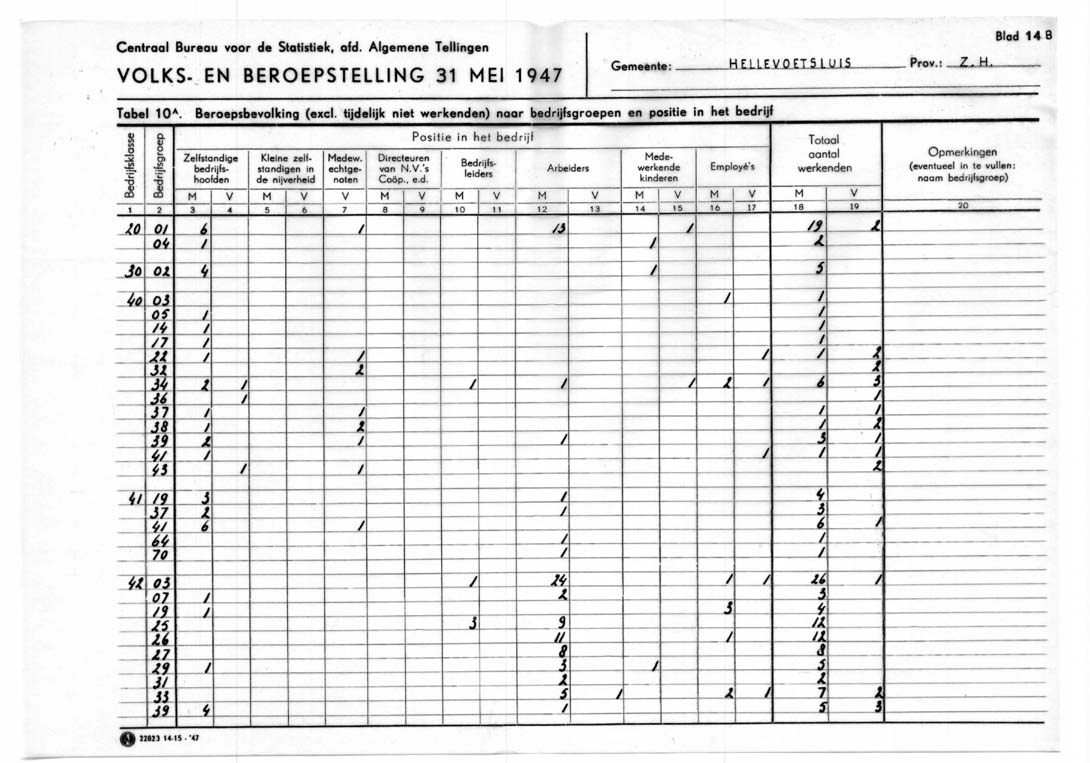 Blad 14 B
Centraal Bureau voor de Statistiek, afd. Algemene Tellingen
VOLKS- EN BEROEPSTELLING 31 MEI 1947
Gemeente: HELLEVOETSLUIS Prov.: Z.H.
Tabel 10A. Beroepsbevolking (excl. tijdelijk niet werkenden) naar bedrijfsgroepen en positie in het bedrijf
Bedrijfsklasse Bedrijfsgroep Positie in het bedrijf Totaal aantal werkenden Opmerkingen (eventueel in te vullen: naam bedrijfsgroep)
Zelfstandige bedrijfs-hoofden Kleine zelf-standigen in de nijverheid Medew. echtge-noten Directeuren van N.V.'s Coöp., e.d. Bedrijfs-leiders Arbeiders Mede-werkende kinderen Employé's
M V M V V M V M V M V M V M V M V
1 2 3 4 5 6 7 8 9 10 11 12 13 14 15 16 17 18 19 20
20 01 6 1 13 1 19 2
04 1 1 2
30 02 4 1 5
40 03 1 1
05 1 1
14 1 1
17 1 1
22 1 1 1 1 2
32 2 2
34 2 1 1 1 1 2 1 6 3
36 1 1
37 1 1 1 1
38 1 2 1 2
39 2 1 1 3 1
41 1 1 1 1
43 1 1 2
41 19 3 1 4
37 2 1 3
41 6 1 6 1
64 1 1
70 1 1
42 03 1 24 1 1 26 1
07 1 2 3
19 1 3 4
25 3 9 12
26 11 1 12
27 8 8
29 1 3 1 5
31 2 2
33 5 1 2 1 7 2
39 4 1 5 3
22823 14-15 - '47